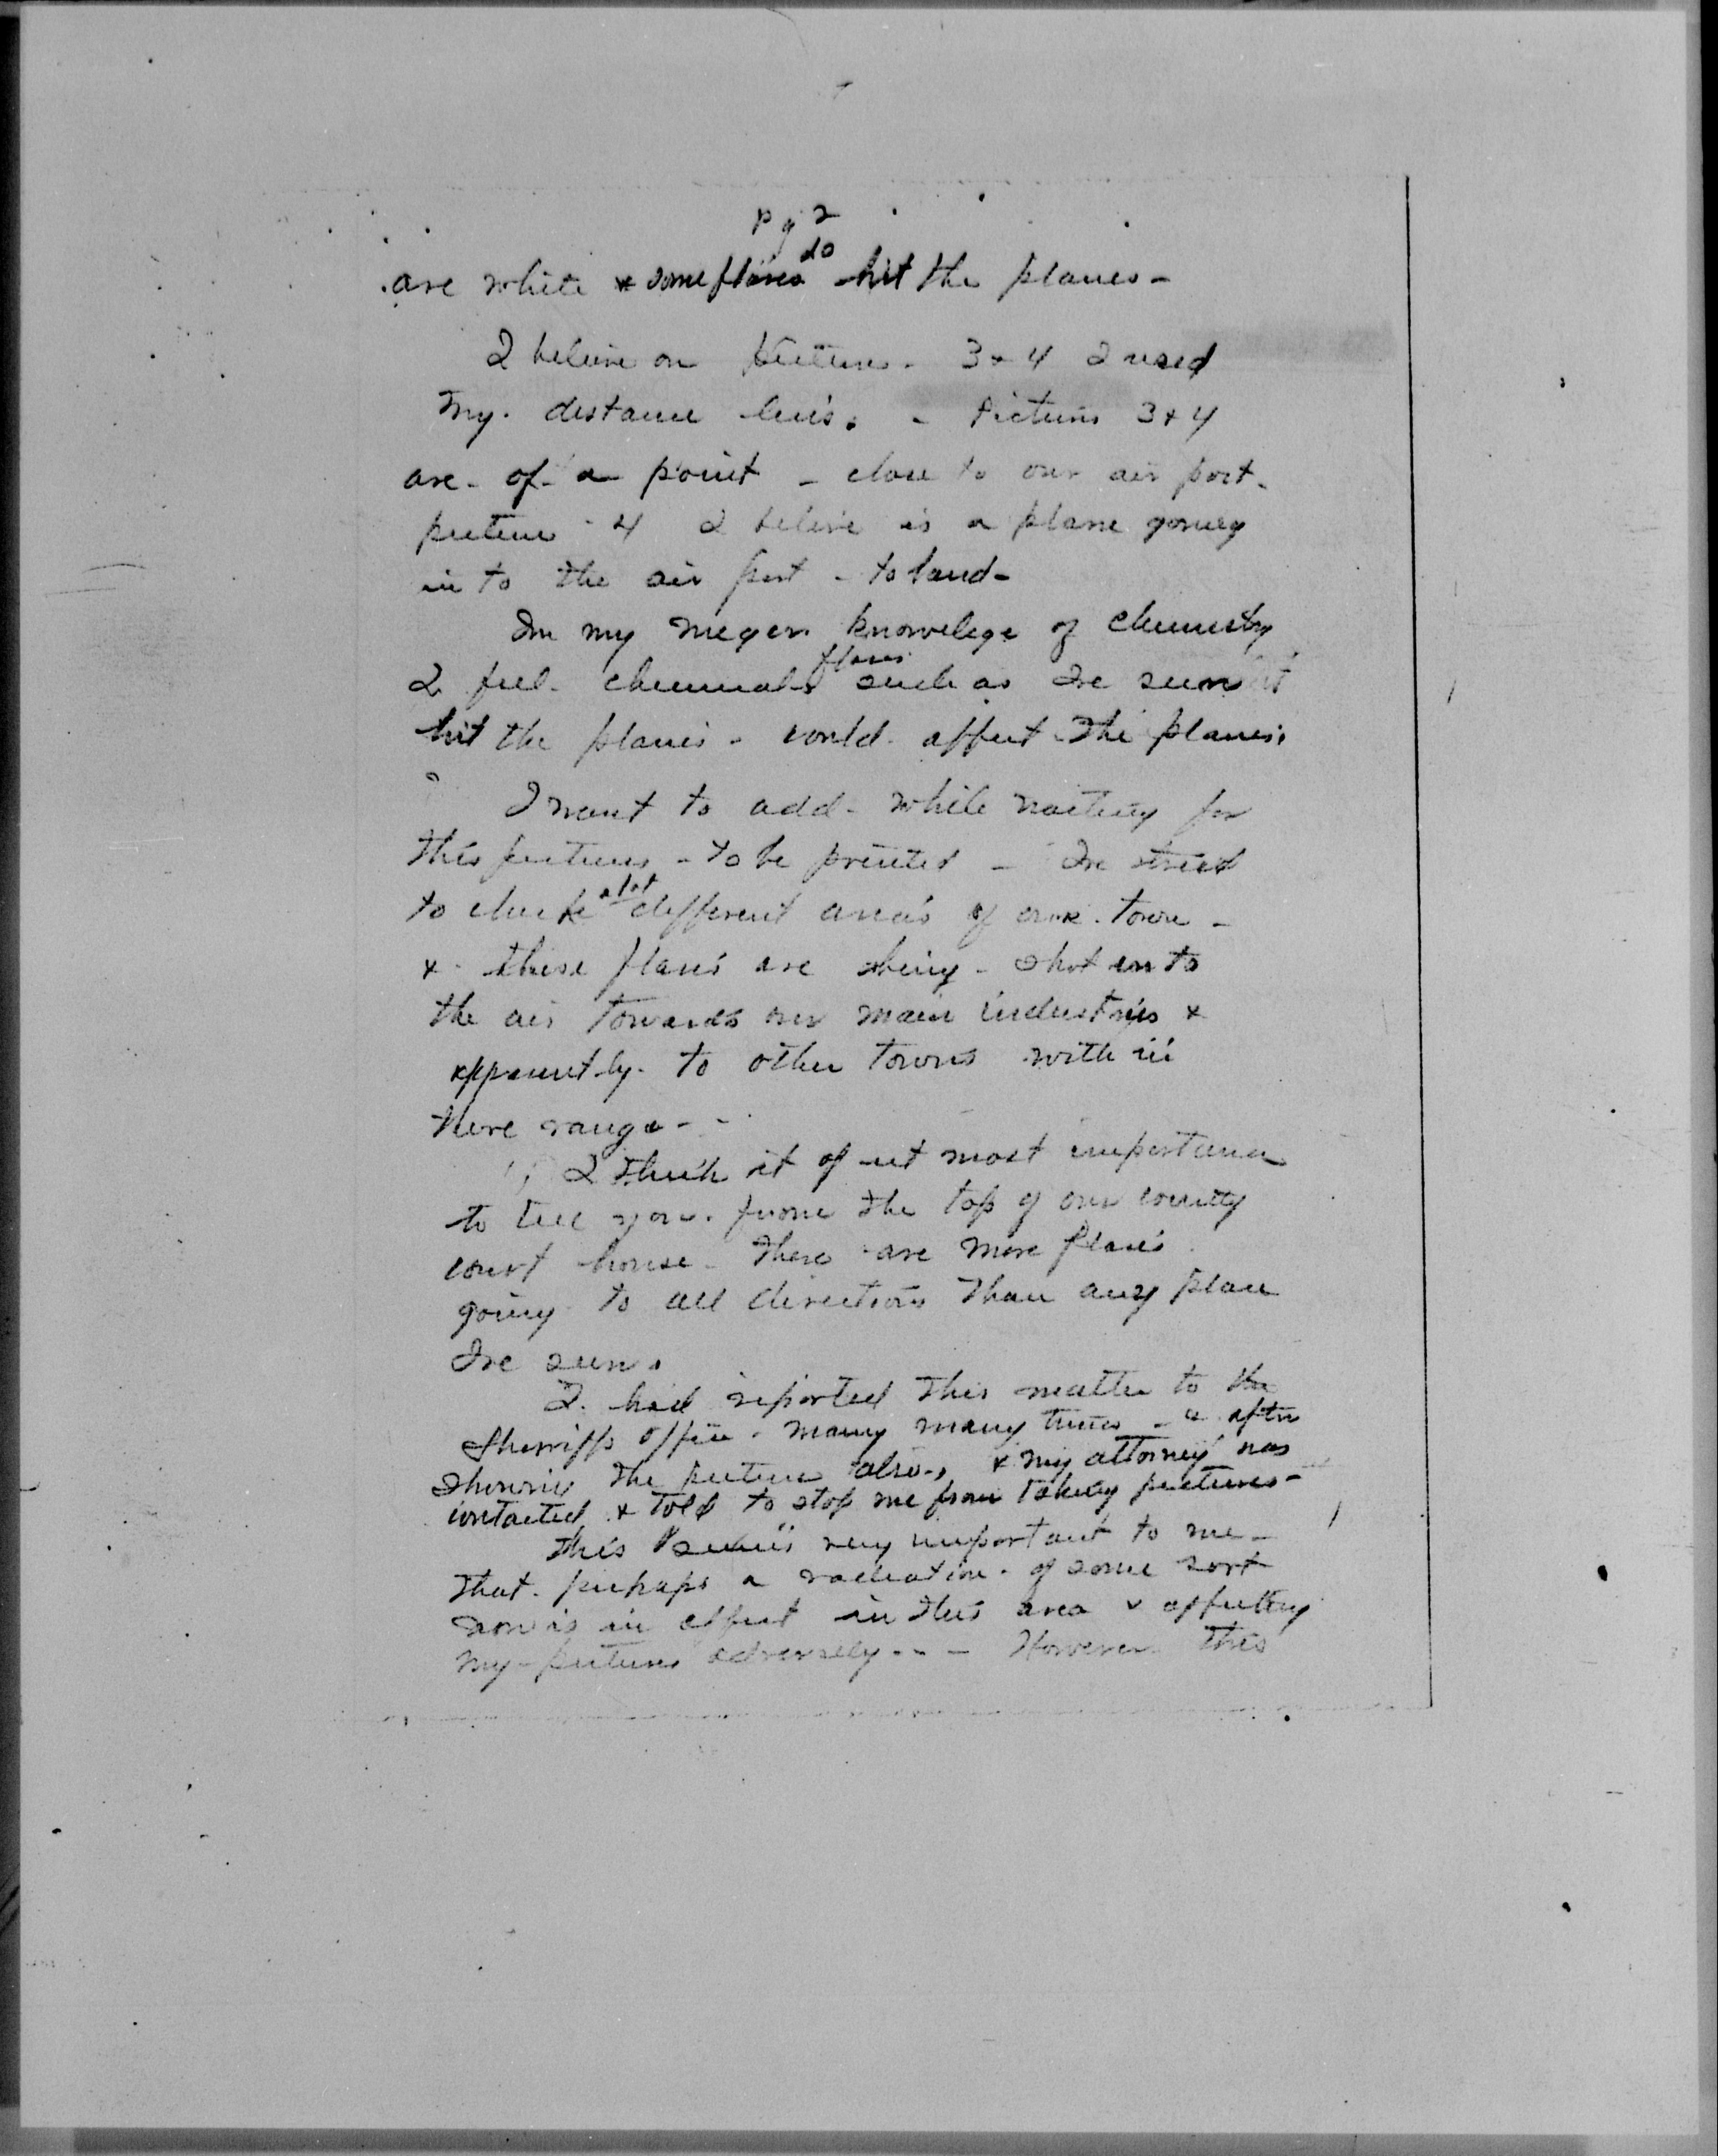 pg 2
do
are white & some flares hit the planes -
I believe on pictures - 3 & 4 I used
my. distance lens. - Pictures 3 & 4
are - of - a point - close to our air port -
picture - 4 I belive is a plane going
in to the air port - to land -
In my meger knowelege of chemistry
flares
I feel - chemicals such as Ive seen
hit the planes - could - affect - the planes.
I want to add - while waiting for
this pictures - to be printed - Ive tried
alot
to check different area's of our town -
& - these flares are being - shot in to
the air towards our main industries &
apparently - to other towns with in
there range - -
I think it of ut most importance
to tell you. from the top of our county
court house - there are more flares
going to all directions than any place
Ive seen.
I. had reported this matter to the
Sherriffs office - many many times - & after
showing the pictures also -, & my attorney was
contacted & told to stop me from taking pictures -
this is very important to me -
that - perhaps a radiation - of some sort
now is in effect in this area & affecting
my - pictures adversely - - - However this